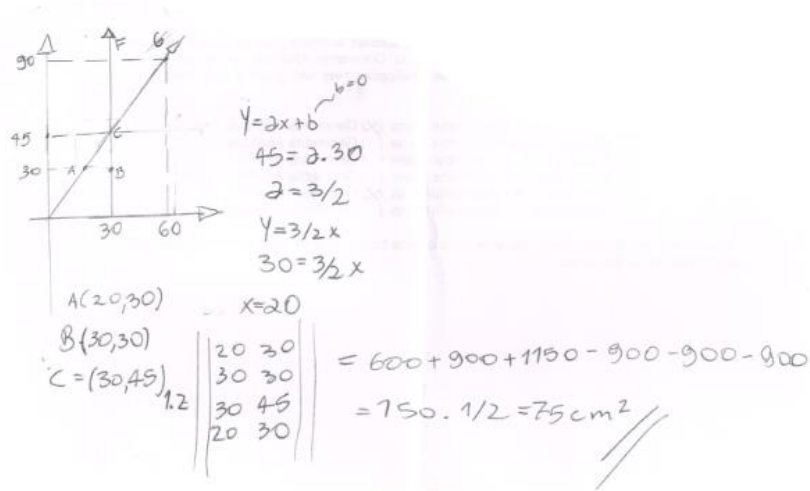 F G
90
45 C
30 A B
30 60
b=0
Y=ax+b
45=a.30
a=3/2
Y=3/2x
30=3/2x
x=20
A(20,30)
B(30,30)
C=(30,45)
1.2
20 30
30 30
30 45
20 30
=600+900+1150-900-900-900
=150.1/2=75cm²